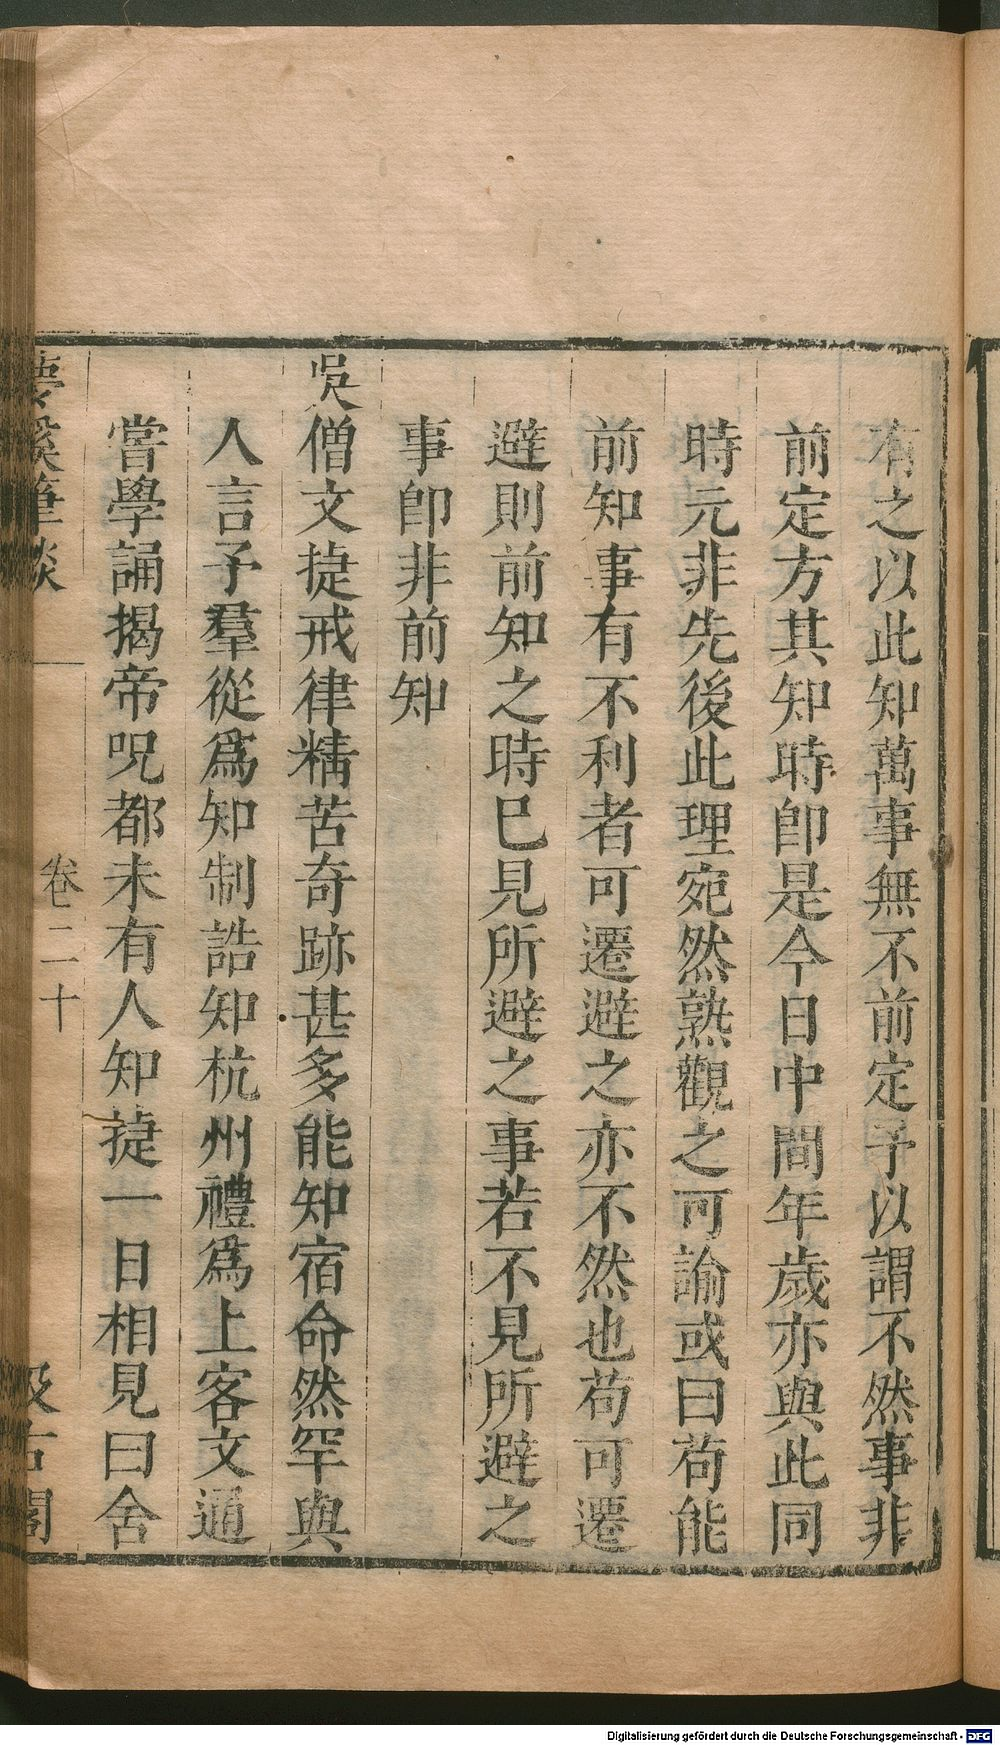 有之以此知萬事無不前定予以謂不然事非
前定方其知時卽是今日中間年歲亦與此同
時元非先後此理宛然熟觀之可諭或曰苟能
前知事有不利者可遷避之亦不然也苟可遷
避則前知之時巳見所避之事若不見所避之
事卽非前知
吳僧文捷戒律精苦奇跡甚多能知宿命然罕與
人言予羣從爲知制誥知杭州禮爲上客文通
嘗學誦揭帝呪都未有人知捷一日相見曰舍
夢溪筆談 卷二十 汲古閣
Digitalisierung gefördert durch die Deutsche Forschungsgemeinschaft - DFG